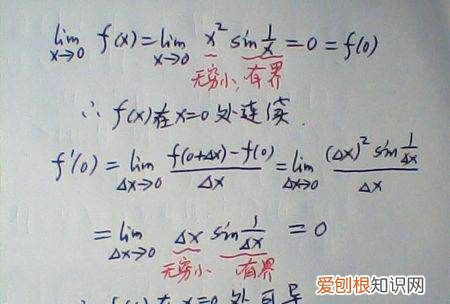 lim x→0 f(x) = lim x→0 x² sin 1/x = 0 = f(0)
无穷小, 有界
∴ f(x)在x=0处连续.
f'(0) = lim Δx→0 f(0+Δx)-f(0)/Δx = lim Δx→0 (Δx)² sin 1/Δx / Δx
= lim Δx→0 Δx sin 1/Δx = 0
无穷小 有界
∴ f(x)在x=0处可导
爱刨根知识网